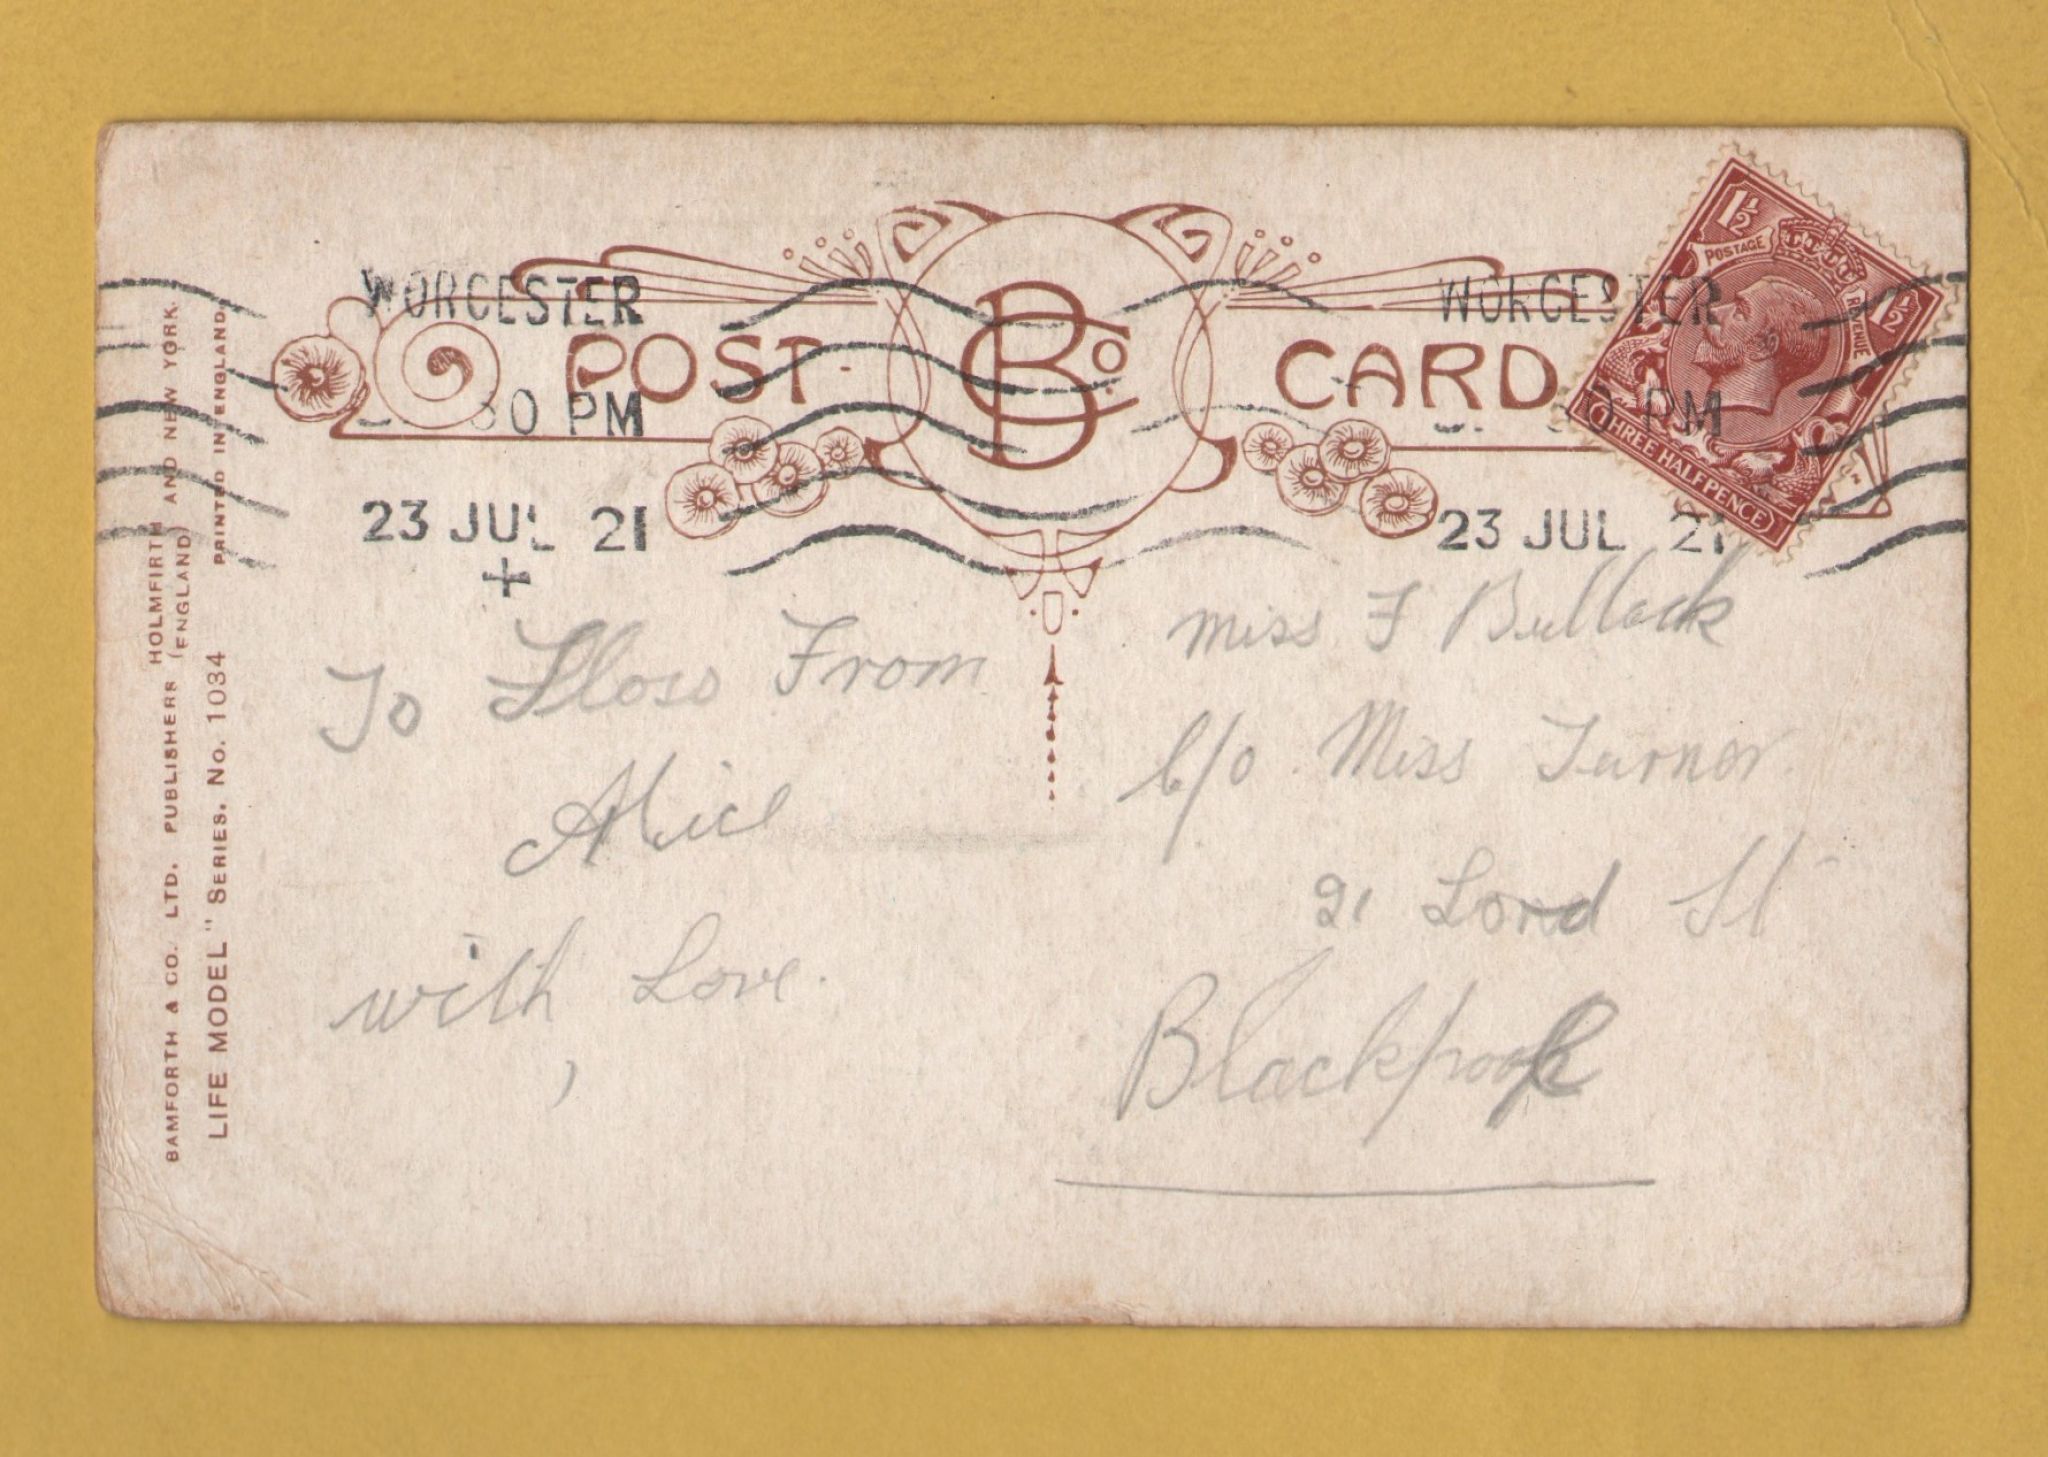 WORCESTER
30 PM
23 JUL 21
+
POST CARD
B Co.
WORCESTER
30 PM
23 JUL 21
1½ 1½
POSTAGE REVENUE
THREE HALFPENCE
To Floss From
Alice
with Love.
Miss F Bullock
C/o Miss Turner
21 Lord St
Blackpool
BAMFORTH & CO. LTD. PUBLISHERS HOLMFIRTH (ENGLAND) AND NEW YORK.
LIFE MODEL" SERIES. No. 1034 PRINTED IN ENGLAND.